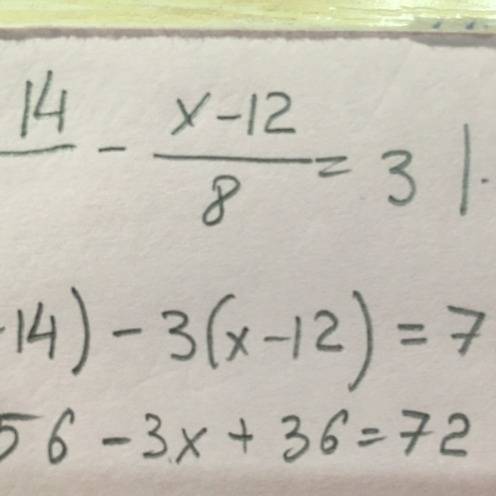 14 / - x-12 / 8 = 3 |·
14) - 3(x-12) = 7
56 - 3x + 36 = 72